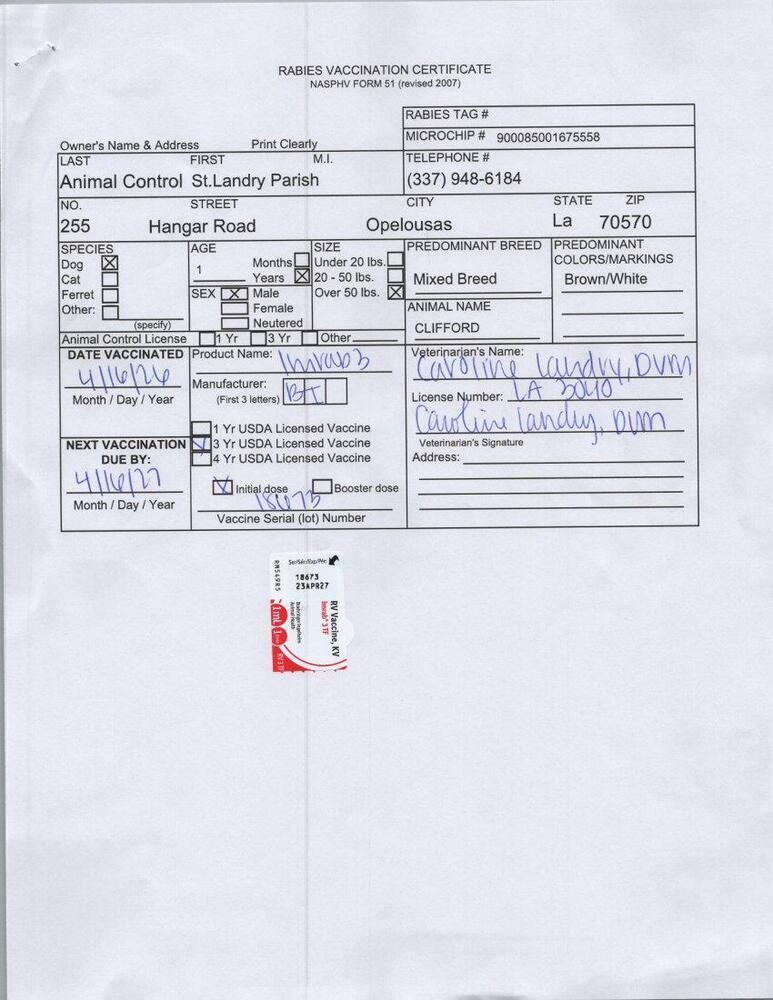 RABIES VACCINATION CERTIFICATE
NASPHV FORM 51 (revised 2007)
RABIES TAG #
MICROCHIP # 900085001675558
Owner's Name & Address Print Clearly
LAST FIRST M.I. TELEPHONE #
Animal Control St.Landry Parish (337) 948-6184
NO. STREET CITY STATE ZIP
255 Hangar Road Opelousas La 70570
SPECIES AGE SIZE PREDOMINANT BREED PREDOMINANT COLORS/MARKINGS
Dog Months Under 20 lbs.
Cat 1 Years 20 - 50 lbs. Mixed Breed Brown/White
Ferret SEX Male Over 50 lbs.
Other: Female ANIMAL NAME
(specify) Neutered CLIFFORD
Animal Control License 1 Yr 3 Yr Other
DATE VACCINATED Product Name: Imrab 3 Veterinarian's Name: Caroline Landry, DVM
4/16/26 Manufacturer: BI License Number: LA 3040
Month / Day / Year (First 3 letters)
1 Yr USDA Licensed Vaccine Caroline Landry, DVM
NEXT VACCINATION 3 Yr USDA Licensed Vaccine Veterinarian's Signature
DUE BY: 4 Yr USDA Licensed Vaccine Address:
4/16/27 Initial dose Booster dose
Month / Day / Year 18673
Vaccine Serial (lot) Number
Ser/Sér:/Exp/Pér:
18673
23APR27
RV Vaccine, KV
Imrab® 3 TF
Boehringer Ingelheim
Animal Health
1mL 1
RV3TF